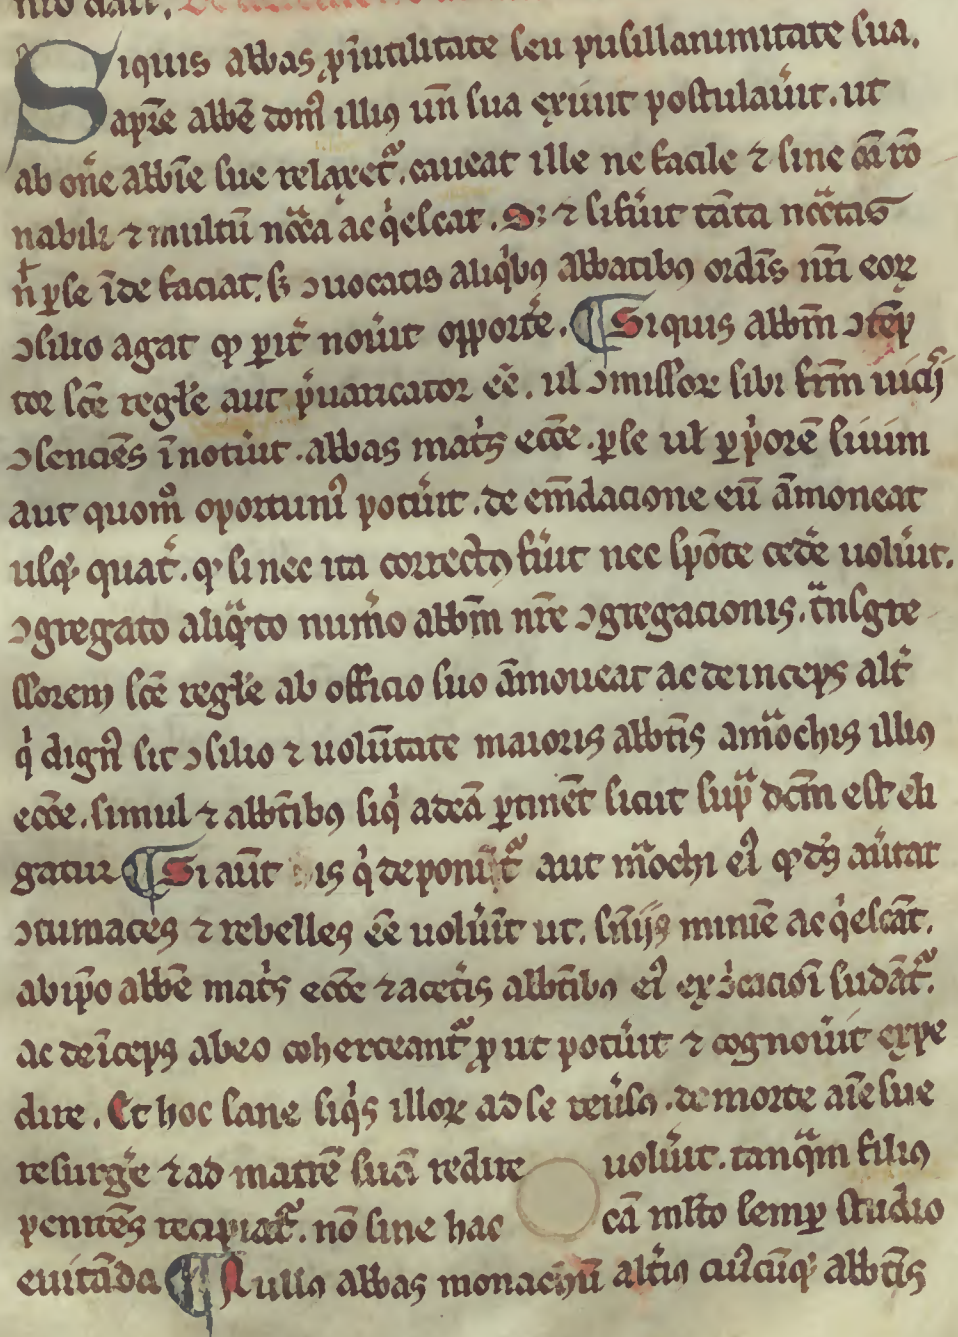 Siquis abbas ꝓ inutilitate seu pusillanimitate sua.
a pr̄e abbē dom̄ illiꝰ un̄ sua exiuit postulau̾it. ut
ab on̾e abb̄ie sue relaxet᷑. caueat ille ne facile ⁊ sine cā ro
nabili ⁊ multū nc̄c̄a ac q̇escat. S; ⁊ si fu̾it tāta nc̄c̄tas
n̄ ꝑ se īde faciat. sꝫ ꝯuocatis aliqͥbꝰ abbatibꝰ ordīs nr̄i eoꝝ
ꝯsilio agat qͦ ꝑit̾ nou̾it opport̾e. ¶ Siquis abbm̄ ꝯtēp
tor scē regłe aut p̾uaricator eē. ul ꝯmissoꝝ sibi fr̄m uicijs
ꝯsenciēs īnotu̾it. abbas mat͛s ecc̄e. ꝑ se uł ꝑ pͥorē suum
aut quomͦ oportuniꝰ potu̾it. de em̄dacione eū āmoneat
usqꝫ quat̾. qͦ si nec ita correctꝰ fu̾it nec spōte ced̾e uolu̾it.
ꝯgregato aliqͣto num̾o abbm̄ nr̄e ꝯgregacionis. tͣnsgre
ssorem scē regłe ab officio suo āmoueat ac deinceps alt̾
qͥ dignꝰ sit ꝯsilio ⁊ uolūtate maioris abbt̄is a mͦochis illiꝰ
ecc̄e. simul ⁊ abbt̄ibꝰ siqͥ ad eā ꝑtinēt sicut supͣ dc̄m est eli
gatur ¶ Si aūt is qͥ deponit᷑ aut mͦochi eiꝰ qͦd au̾tat
ꝯtumaces ⁊ rebelles eē uolu̾īt ut. sn̄ijs minīe acqͥescāt.
ab ip̄o abbē mat͛s ecc̄e ⁊ a cet̾is abbt̄ibꝰ eiꝰ exꝯīcacioī subdāt᷑.
ac deīceps ab eo coherceant᷑ ꝓut potu̾it ⁊ cognou̾it expe
dire. Et hoc sane siqͥs illoꝝ ad se reu̾sꝰ. de morte aīe sue
resurg̾e ⁊ ad matrē suā redire uolu̾it. tanqͣm filiꝰ
penitēs recipiat᷑. nō sine hac cā mlto semꝑ studio
euitāda ¶ Nullꝰ abbas monachū alt̾iꝰ cuiꝰcūqꝫ abbt̄is